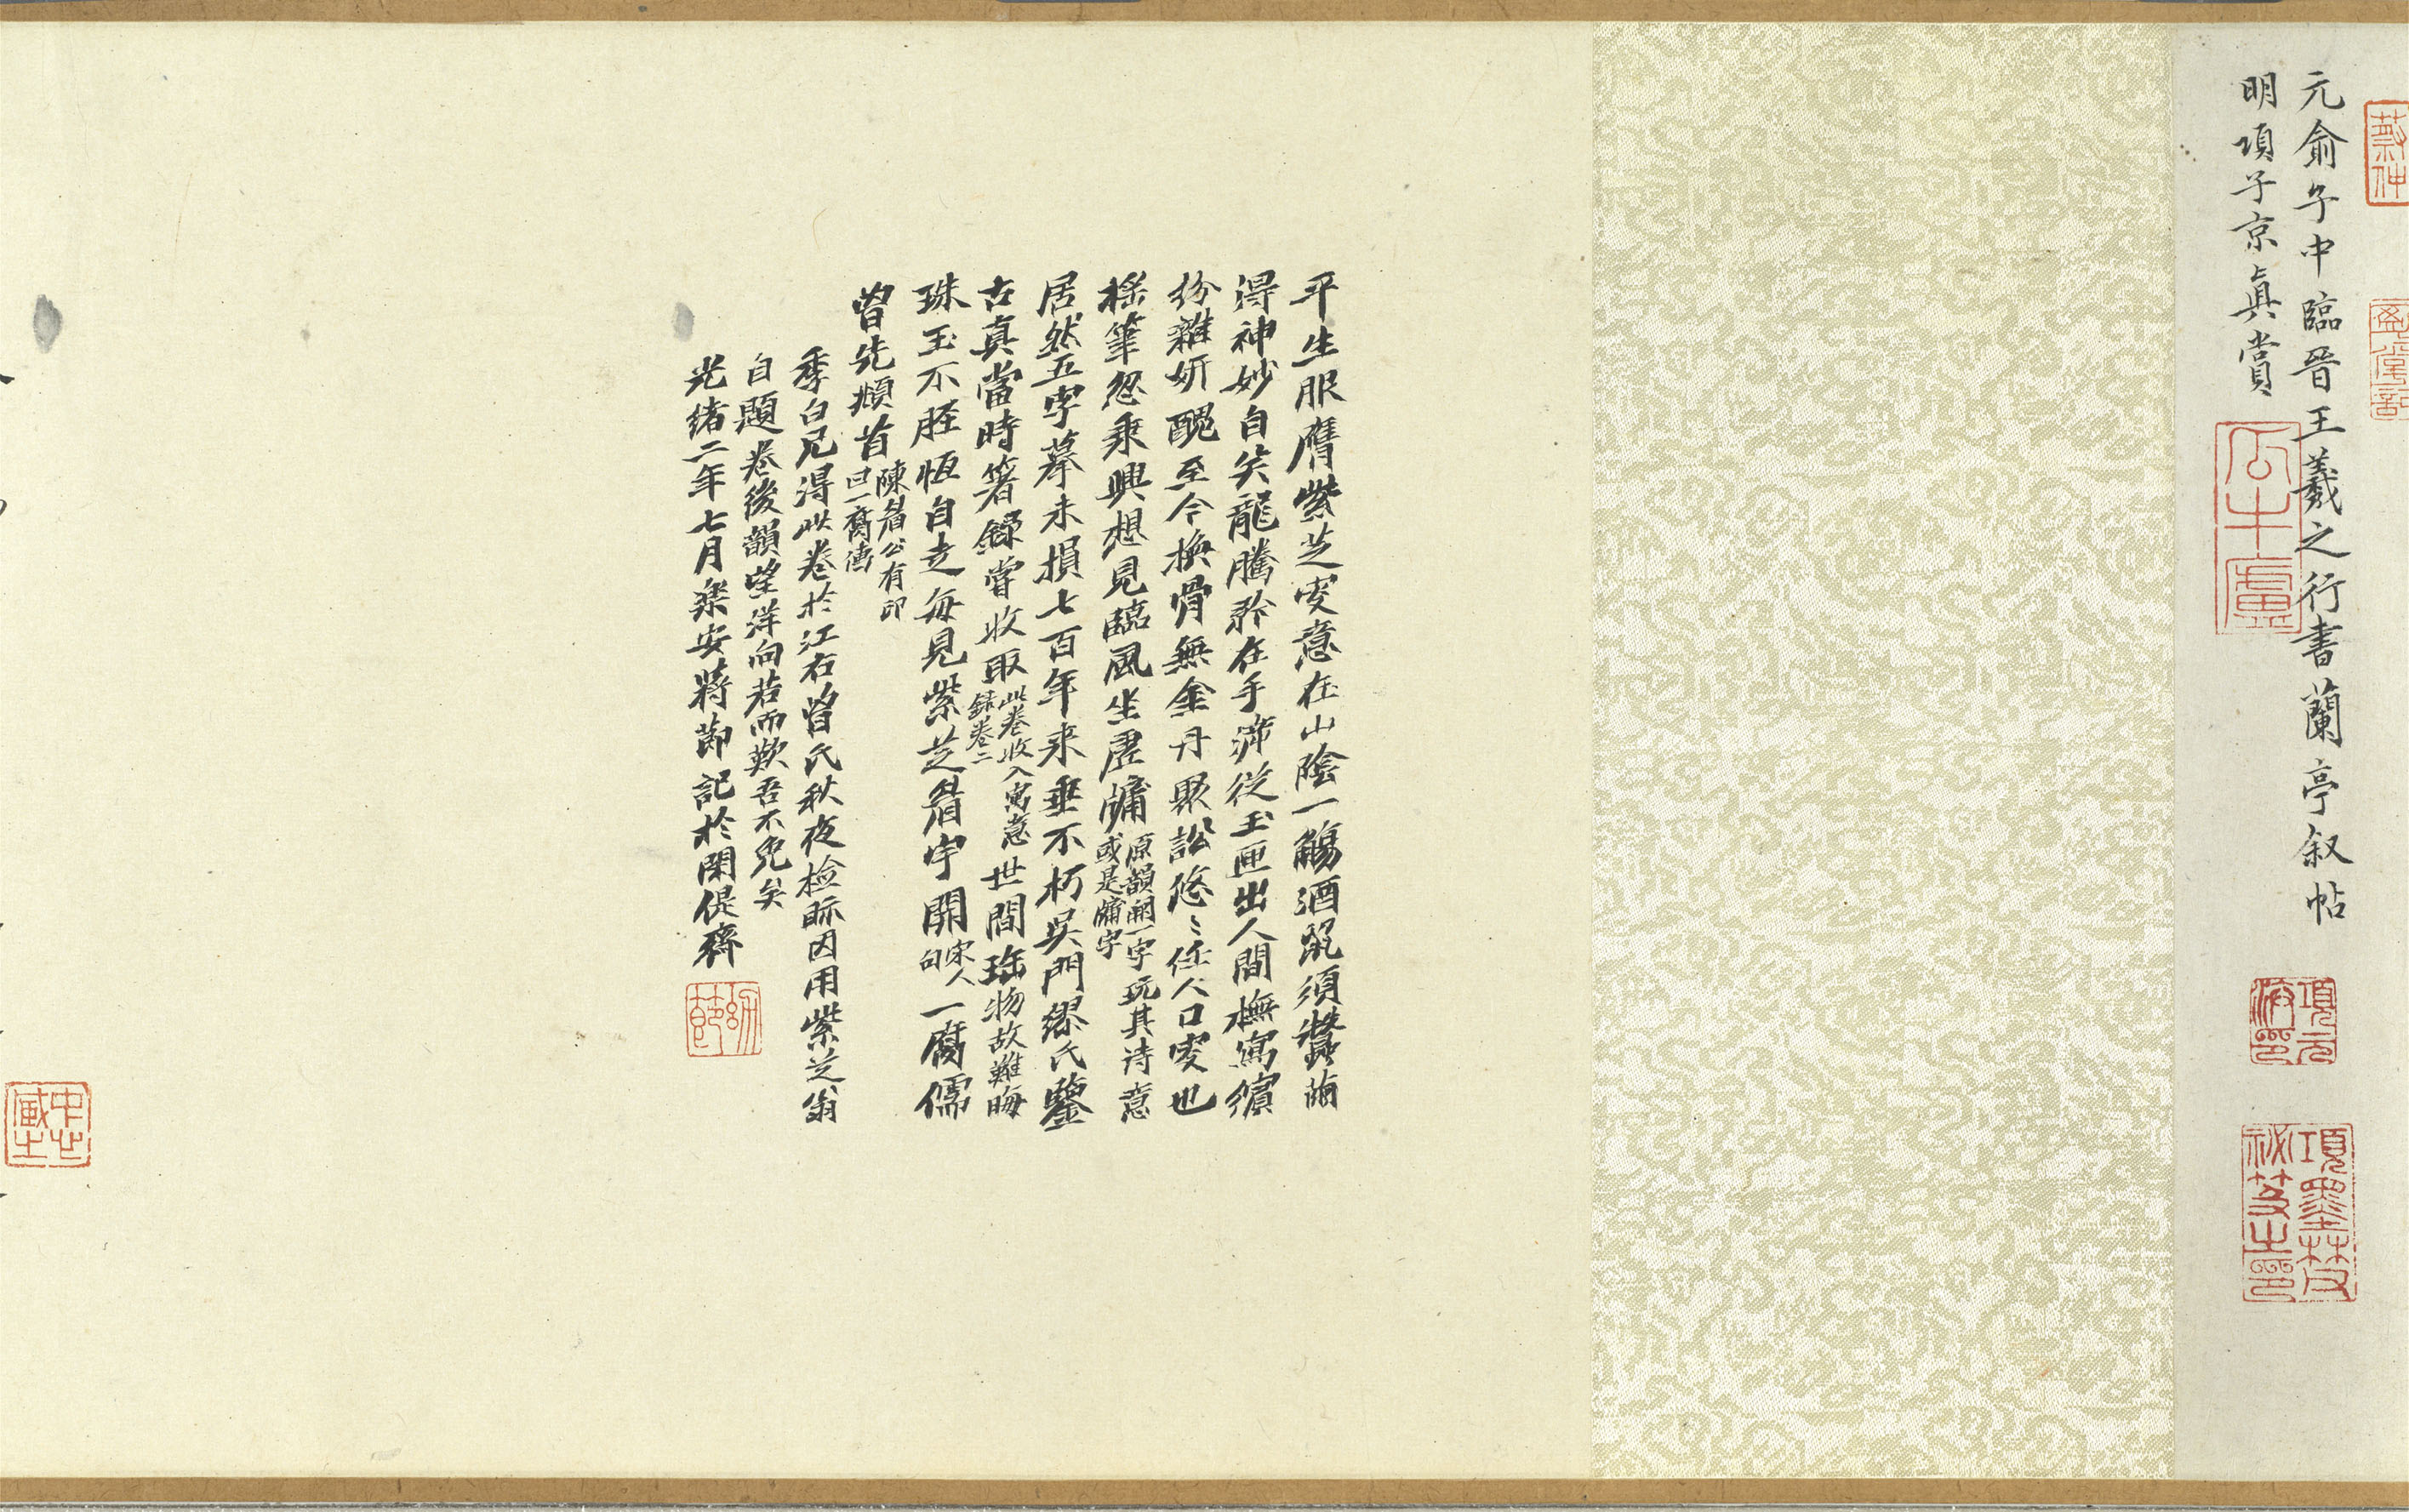 元俞子中臨晉王羲之行書蘭亭叙帖
明項子京真賞
項元汴印
項墨林父祕笈之印
平生服膺紫芝叟意在山陰一觴酒既須蠶繭
得神妙自矣龍騰欻在手游從玉匣出人間橅寫繽
紛雜妍醜至今換骨無金丹聚訟悠〻任人口叟也
搖筆忽乘興想見臨風坐虛牖原韻闕一字玩其诗意
或是牖字
居然五字摹未損七百年来垂不朽吳門繆氏鑒
古真當時箸錄嘗收取此卷收入寓意世間珍物故難晦
録卷二
珠玉不胫恆自走每見紫芝眉宇開宋人一腐儒
句
曾先頫首陳眉公有印
曰一腐儒
季白兄得此卷於江右曾氏秋夜檢眎因用紫芝翁
自題卷後韻望洋向若而歎吾不免矣
光緒二年七月樂安蔣節記於閑偍齋